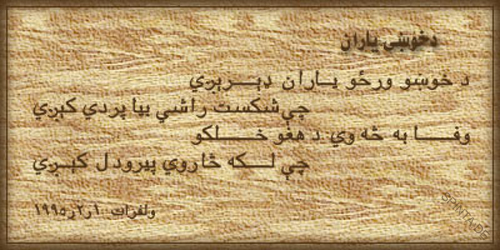 دخوښۍ ياران
د خوښو ورځو ياران ډېرېږي
چې شکست راشي بيا پردي کېږي
وفا به څه وي د هغو خلکو
چې لکه څاروي پيرودل کېږي
ولفرات ١ر٢ر١٩٩٥